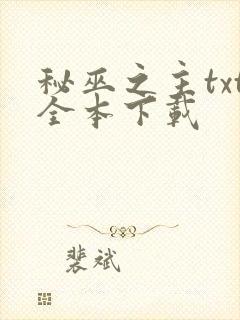 秘巫之主txt
全本下载
裴斌